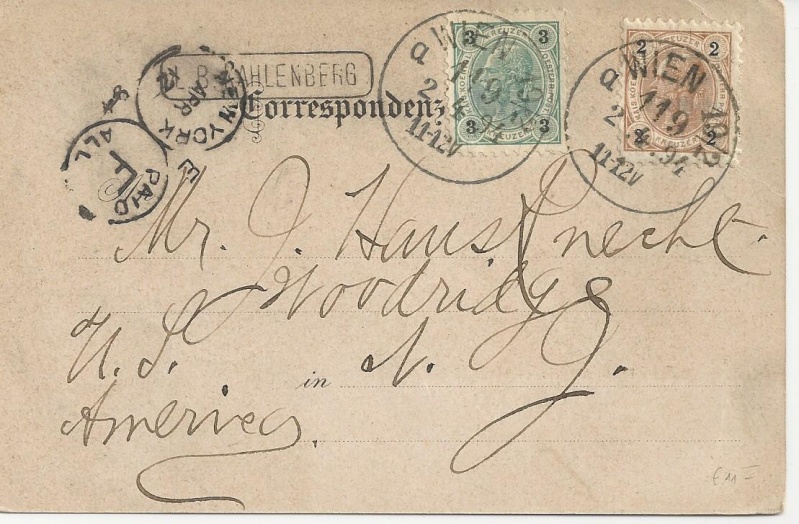 KAHLENBERG
NEW YORK
APR
PAID
ALL
3 KREUZER 3
3 KREUZER 3
WIEN
119
11-12V
2 KREUZER 2
2 KREUZER 2
WIEN
119
2.4.94
11-12V
Correspondenz
Mr. J. Hausknecht.
Woodridge
U. S. in N. J.
America.